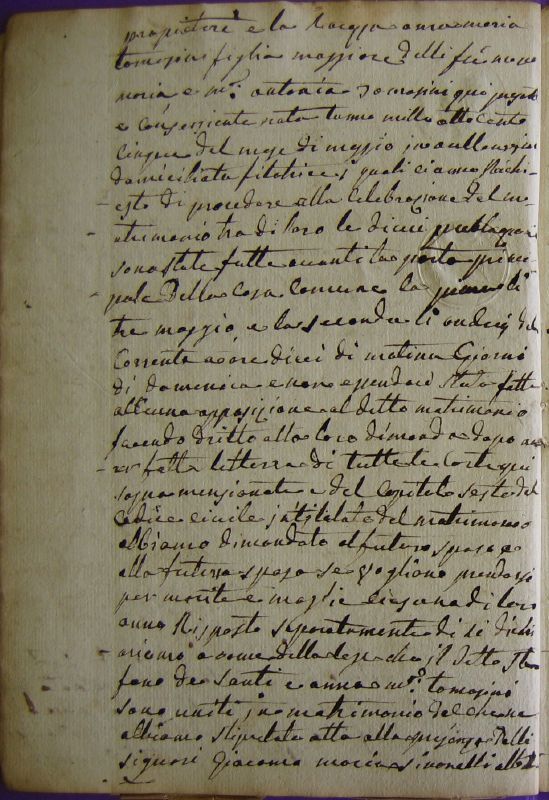 propietere e la Ragazza anna maria
tomasini figlia maggiore delli fu
maria e m.ª antonia tomasini qui presente
e consensiente nata l'anno mille otto cento
cinque del mese di maggio in
domiciliata filatrice i quali ci anno Richi-
esto di procedere alla Celebrazione del m
atrimonio tra di loro le di cui publicazioni
sono state fatte avanti la porta princi-
pale Della Casa Comune la prima li
tre maggio e la seconda li undeci del
Corrente a ore dieci di matina Giorni
di domenica e non essendoci stata fatta
alcuna opposizione al detto matrimonio
facendo dritto alla loro dimanda dopo av
er fatta letterra di tutte le carte qui
sopra mensionate e del Capitolo sesto del
Codice civile intitolato del matrimonio
abbiamo dimandato al futuro sposo e
alla futura sposa se vogliono prendersi
per marito e moglie ciascuna di loro
anno Risposto separatamente di si dichi
ariamo a nome della lege che il detto Ste
fano de Santi e anna m.ª tomasini
sono uniti in matrimonio del che ne
abbiamo stipulato atto alla presenza Delli
signori Giacomo maria simonelli